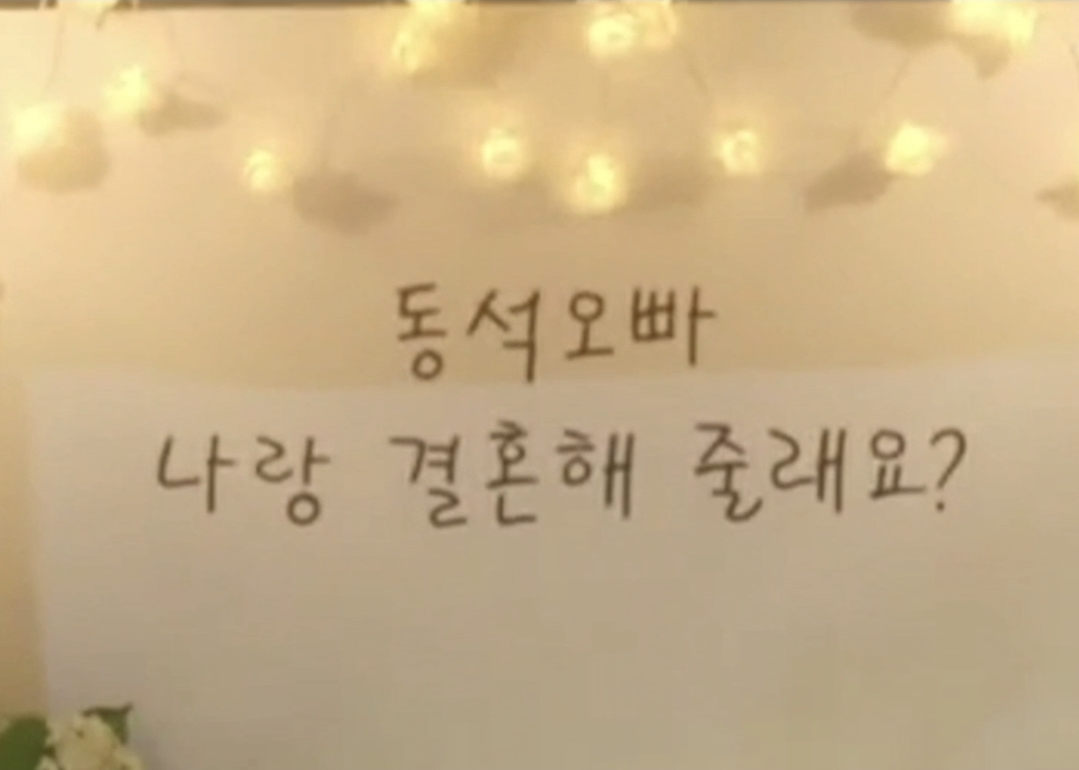 동석오빠
나랑 결혼해 줄래요?